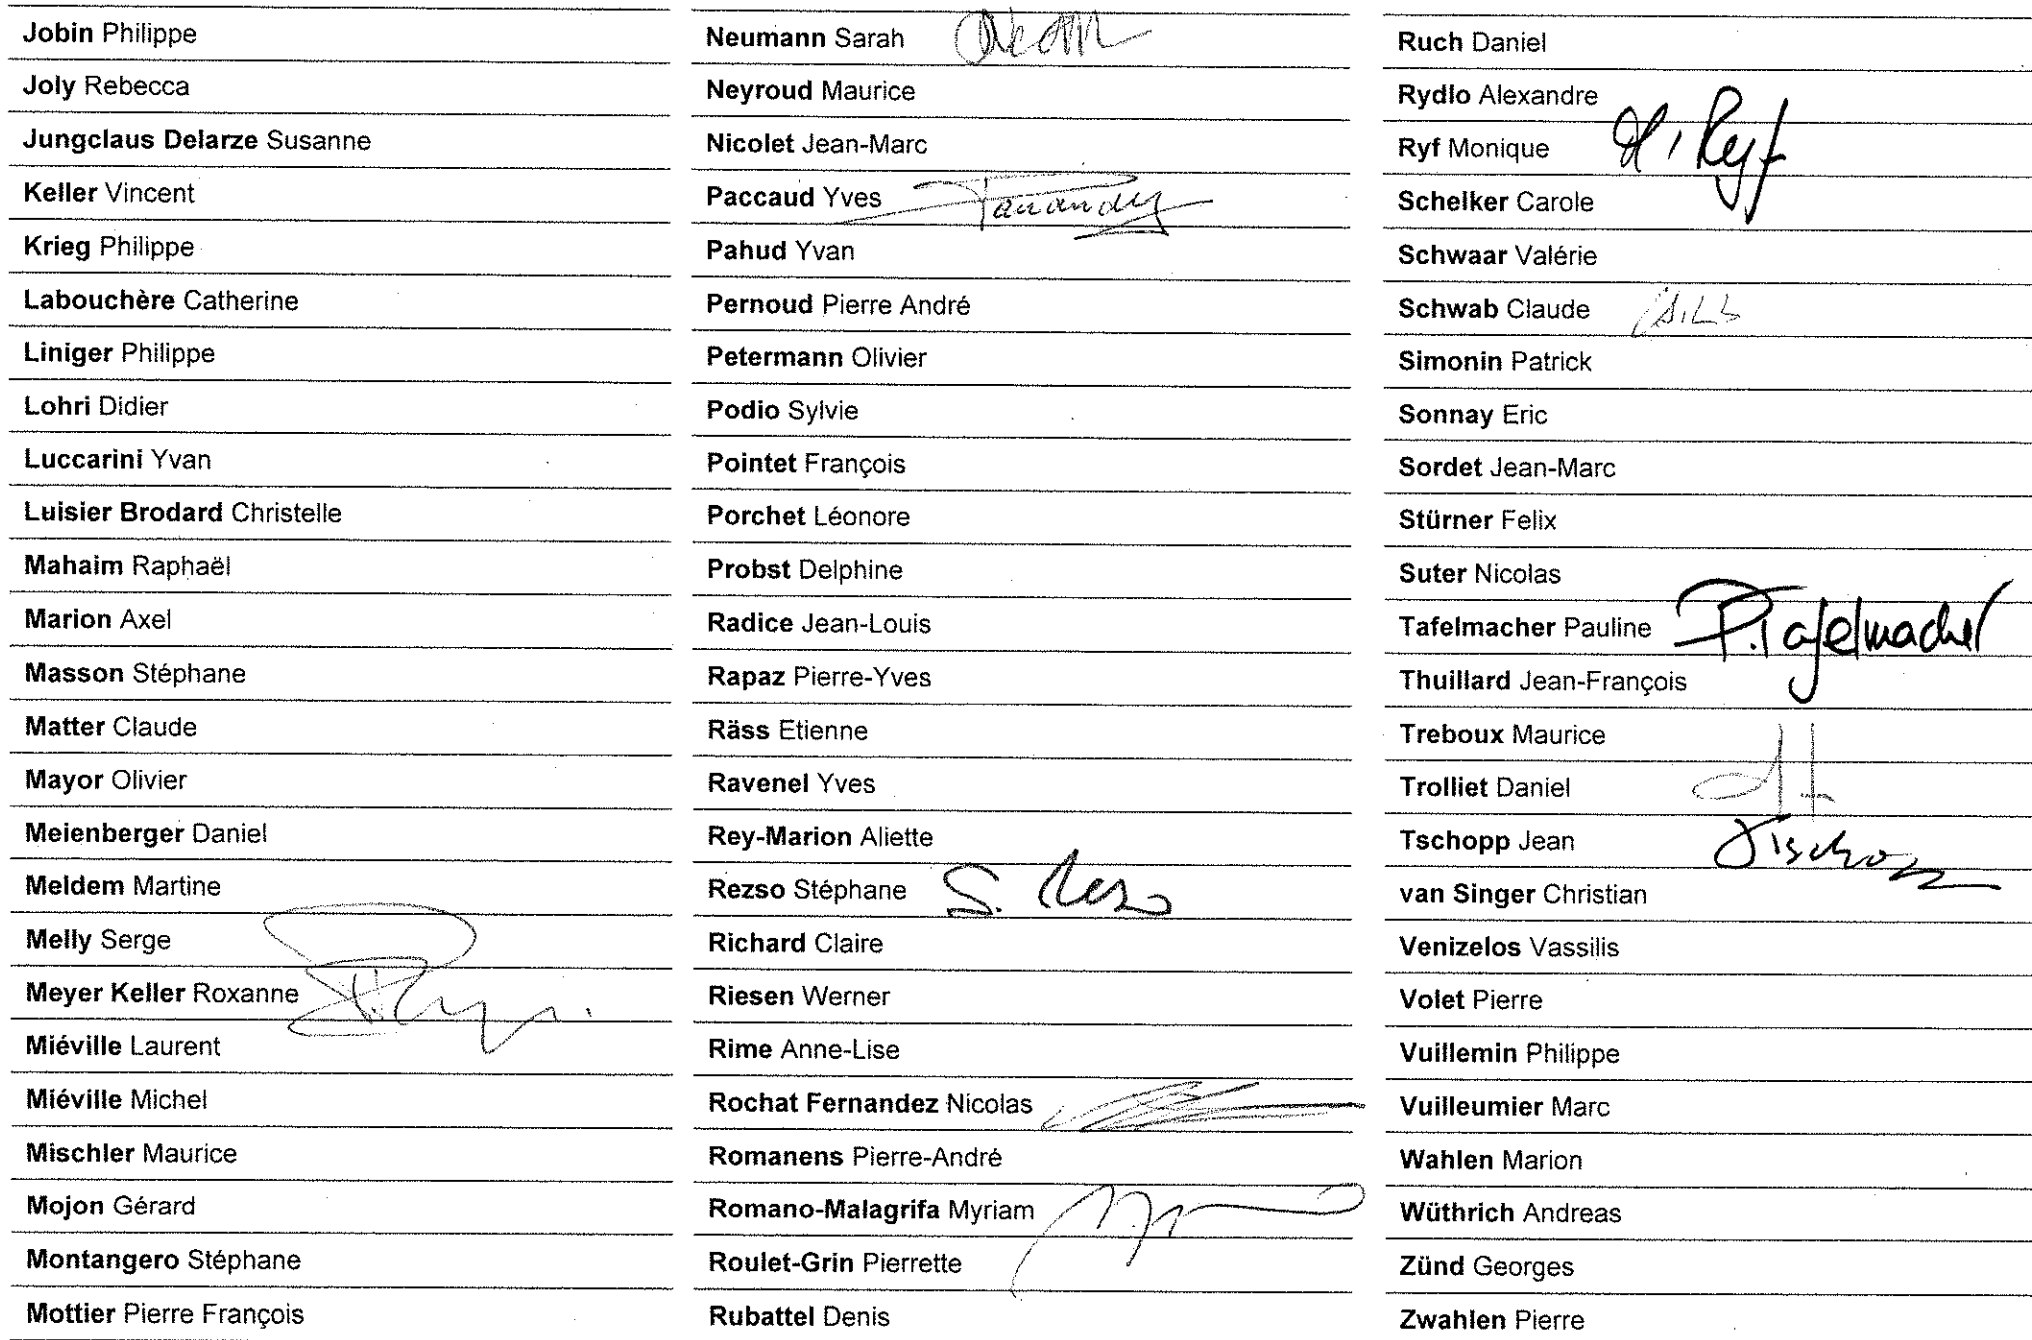 Jobin Philippe
Joly Rebecca
Jungclaus Delarze Susanne
Keller Vincent
Krieg Philippe
Labouchère Catherine
Liniger Philippe
Lohri Didier
Luccarini Yvan
Luisier Brodard Christelle
Mahaim Raphaël
Marion Axel
Masson Stéphane
Matter Claude
Mayor Olivier
Meienberger Daniel
Meldem Martine
Melly Serge
Meyer Keller Roxanne
Miéville Laurent
Miéville Michel
Mischler Maurice
Mojon Gérard
Montangero Stéphane
Mottier Pierre François
Neumann Sarah
Neyroud Maurice
Nicolet Jean-Marc
Paccaud Yves
Pahud Yvan
Pernoud Pierre André
Petermann Olivier
Podio Sylvie
Pointet François
Porchet Léonore
Probst Delphine
Radice Jean-Louis
Rapaz Pierre-Yves
Räss Etienne
Ravenel Yves
Rey-Marion Aliette
Rezso Stéphane S. Rezso
Richard Claire
Riesen Werner
Rime Anne-Lise
Rochat Fernandez Nicolas
Romanens Pierre-André
Romano-Malagrifa Myriam
Roulet-Grin Pierrette
Rubattel Denis
Ruch Daniel
Rydlo Alexandre
Ryf Monique Ryf
Schelker Carole
Schwaar Valérie
Schwab Claude
Simonin Patrick
Sonnay Eric
Sordet Jean-Marc
Stürner Felix
Suter Nicolas
Tafelmacher Pauline P. Tafelmacher
Thuillard Jean-François
Treboux Maurice
Trolliet Daniel
Tschopp Jean
van Singer Christian
Venizelos Vassilis
Volet Pierre
Vuillemin Philippe
Vuilleumier Marc
Wahlen Marion
Wüthrich Andreas
Zünd Georges
Zwahlen Pierre